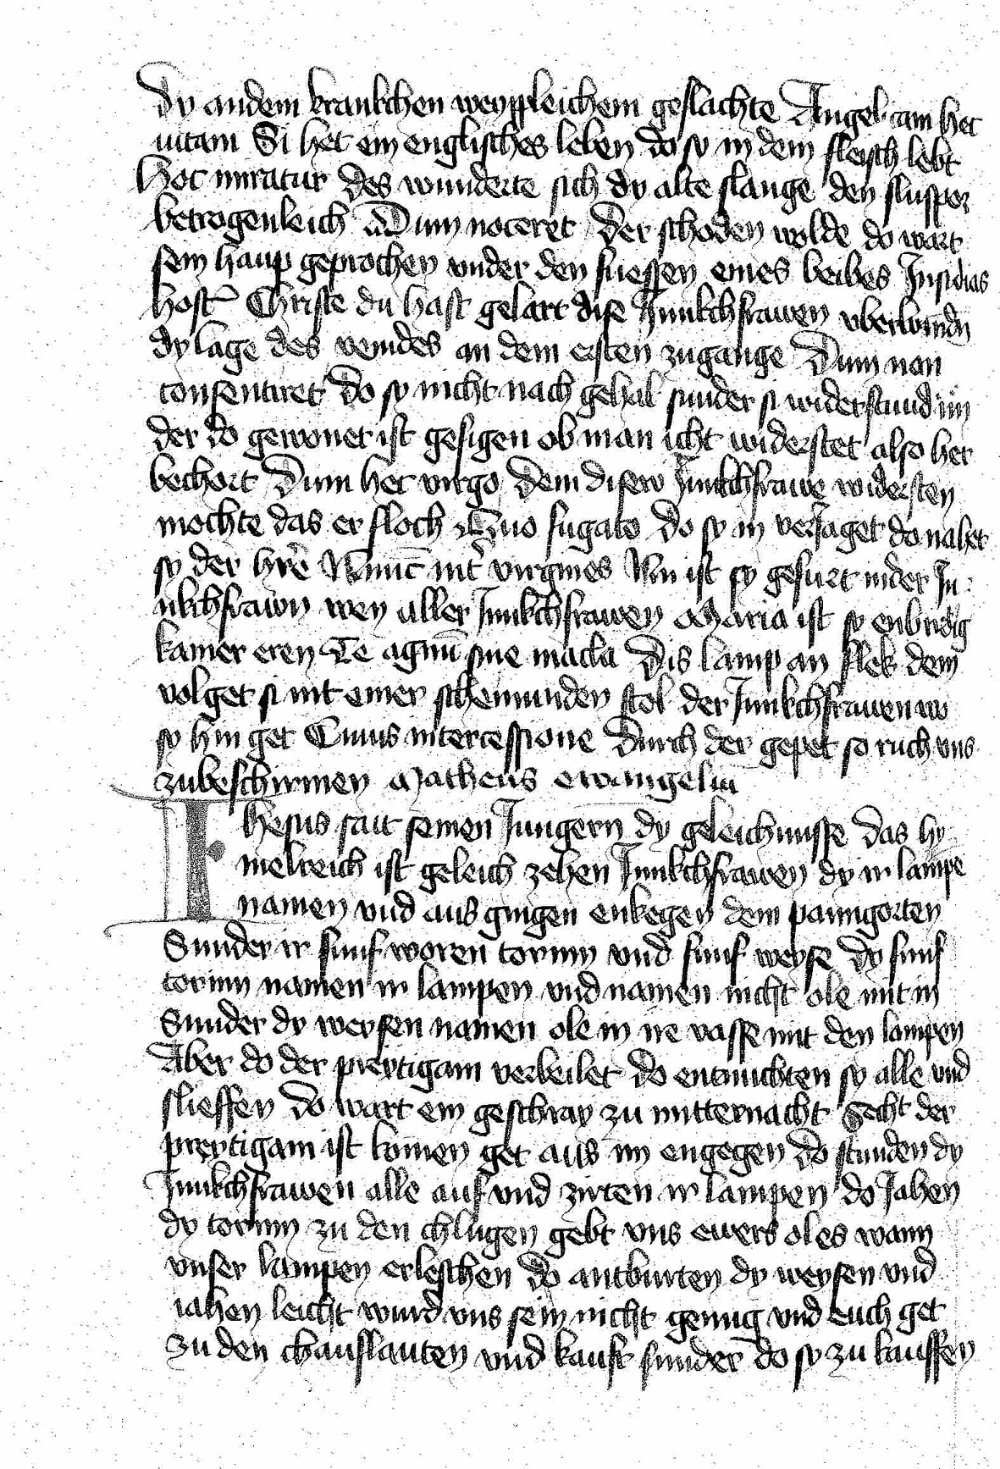 dy andem krankchen weyppleichem geslachte Angelicam hec
uitam Si het ein englisches leben do sy in dem fleisch lebt
Hoc miratur des wunderte sich dy alte slange den slusper
betrogenleich Dum noceret Der schoden wolde do wart
sein haup geprochen vnder den fuessen eines beibes Insidias
host Christe du hast gelart dise Junkchfrawen vberwindn
dy lage des veindes an dem ersten zugange Dum non
consentiret do sy nicht nach gehal sunder si widerstund im
der do gewonet ist gesigen ob man icht widerstet also her
bechort Dum hec virgo dem disew Junkchfrawe widersten
mochte das er floch Quo fugato do sy in veriaget do nahet
sy der hre Nunc int virgines Nu ist sy gefurt inder Ju
nkchfrawn wen aller Junkchfrawen Maria ist sy enbirdig
kamer eren Te agnu sine macla Dis lamp an flek dem
volget si mit einer scheinunden stol der Junkchfrawen wo
sy hin get Cuius intercessione Durch der gepet so ruch vns
zubeschirmen Matheus ewangeliu
Ihesus sait seinen Jungern dy geleichnusse das hy
melreich ist geleich zehen Junkchfrawen dy ir lampe
namen vnd aus gingen enkegen dem pawmgorten
Sunder ir funf woren torinn vnd funf weyse dy funf
torinn namen ir lampen vnd namen nicht ole mit in
Sunder dy weysen namen ole in ire vasse mit den lampen
Aber do der preytigam verbeilet do entnuchten sy alle vnd
slieffen Do wart ein geschray zu mitternacht Secht der
preytigam ist komen get aus im engegen do stunden dy
Junkchfrawen alle auf vnd zirten ir lampen do Jahen
dy torinn zu den chlugen gebt vns ewers oles wann
vnser lampen erleschen do antburten dy weysen vnd
iahen leicht wurd vns sein nicht genug vnd euch get
zu den chauflauten vnd kauft sunder do sy zu kauffen